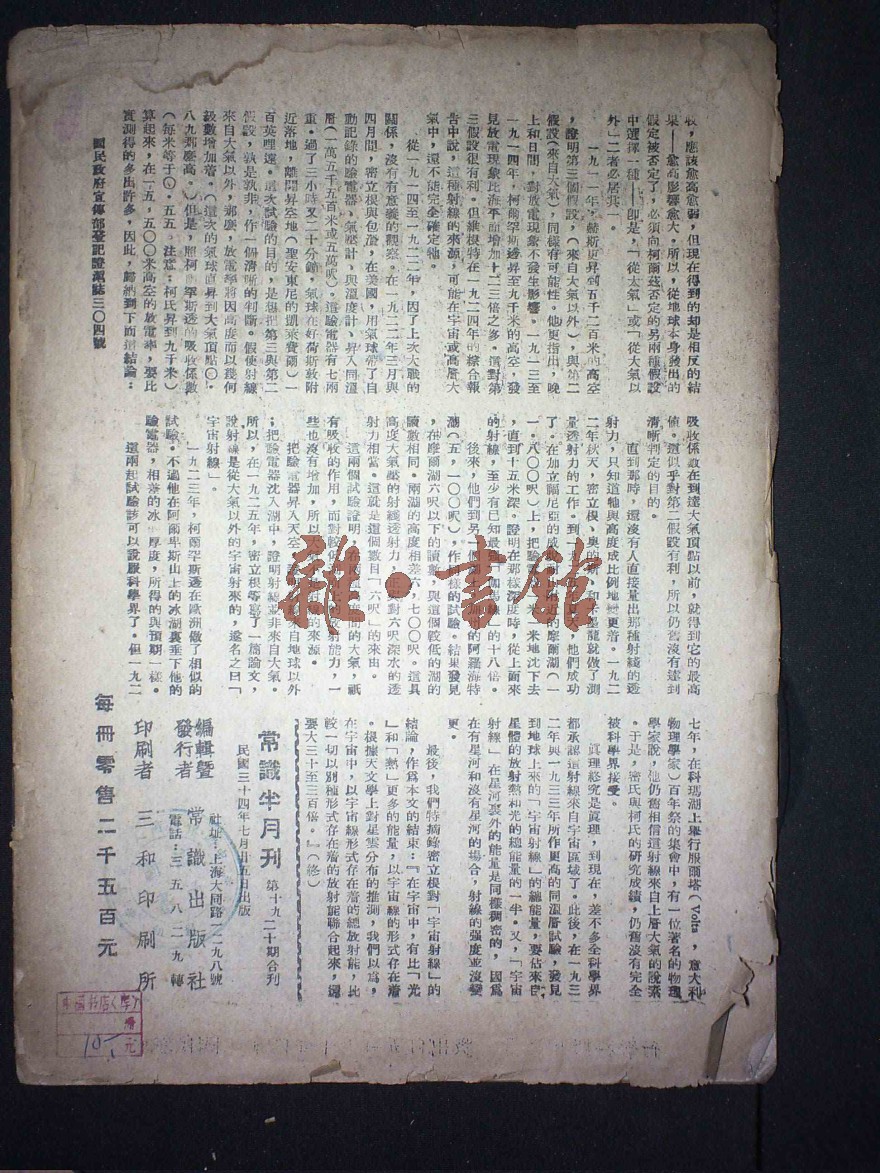 收,應該愈高愈弱,但現在得到的却是相反的結
果——愈高影響愈大。所以,從地球本身發出的
假定被否定了,必須向柯爾茲否定的另兩種假設
中選擇一種——卽是,「從太氣」或「從大氣以
外」二者必居其一。
一九一一年,赫斯更昇到五千二百米的高空
,證明第三個假設,(來自大氣以外),與第二
假設(來自大氣),同樣有可能性。他更指出,晚
上和日間,對放電現象不發生影響。一九一三至
一九一四年,柯爾罕斯邊昇至九千米的高空,發
見放電現象比海平面增加十二三倍之多,
三假設很有利。但繼模特在一九二四年的綜合報
告中說,這種射線的來源,可能在宇宙或高層大
氣中,還不能完全確定牠。
從一九一四至一九二二年,因了上次大戰的
關係,沒有有意義的觀察。在一九二二年三月與
四月間,密立根與包溫,在美國,用氣球帶了自
動記錄的驗電器,氣壓計,與溫度計,昇入同溫
層(一萬五千五百米或五萬呎)。這驗電器有七兩
重。過了三小時又二十分鐘,氣球在好荷斯敦附
近落地,離開昇空地(聖安東尼的凱萊費爾)一
百英理遠。這次試驗的目的,是想把第三與第二
假設,孰是孰非,作一個清晰的判斷。假使射線
來自大氣以外,那麼,放電率將因高度而以幾何
級數增加着。(這次的氣球直昇到大氣頂點〇·
八九那麼高。)但是,照柯爾罕斯邊的吸收係數
(每米等于〇·五五。注意:柯氏昇到九千米)
算起來,在一五,五〇〇米高空的放電率,要比
實測得的多出許多,因此,歸納到下面這結論:
國民政府宣傳部登記證滬誌三〇四號
吸收係數在到達大氣頂點以前,就得到它的最高
值。這似乎對第二假設有利,所以仍舊沒有達到
清晰判定的目的。
直到那時,還沒有人直接量出那種射綫的透
射力,只知道牠與高度成比例地變更着。一九二
二年秋天,密立根,奧的斯,和
量透射力的工作。
了。在加立福尼亞的
一·八〇〇呎)上,把驗電器
,直到十五米深。證明在那樣深度時,從上面來
的射線,至少有已知最
後來,他們到另一個
湖(五,一〇〇呎),作同樣的試驗。結果發見
,在摩爾湖六呎以下的讀數,與這個較低的湖的
讀數相同。兩湖的高度相差六,七〇〇呎。這具
高度大氣壓的射綫透射力,正與對六呎深水的透
射力相當。這就是這個數目「六呎」的來由。
這兩個試驗證明,
有吸收的作用,
些也沒有增加,所以大氣
把驗電器昇入天空,
;把驗電器沈入湖中,證明射線並非來自大氣。
所以,在一九二五年,密立根等寫了一篇論文,
說射線是從大氣以外的宇宙射來的,遂名之曰「
宇宙射線」。
一九二三年,柯爾罕斯邊在歐洲做了相似的
試驗。不過他在阿爾卑斯山上的冰湖裏垂下他的
驗電器,相當的冰,厚度,所得的與預期一樣。
這兩起試驗該可以說服科學界了。但一九二
七年,在科瑪湖上舉行服爾塔(Volta,意大利
物理學家)百年祭的集會中,有一位著名的物理
學家說,他仍舊相信這射線來自上層大氣的說素
。于是,密氏與柯氏的研究成績,仍舊沒有完全
被科學界接受。
眞理終究是眞理,到現在,差不多全科學界
都承認這射線來自宇宙區域了。此後,在一九三
二年與一九三三年所作更高的同溫層試驗,發見
到地球上來的「宇宙射線」的總能量,要佔來自
星體的放射熱和光的總能量的一半。又,「宇宙
射線」在星河裏外的能量是同樣稠密的,因爲
在有星河和沒有星河的場合,射線的强度並沒變
更。
最後,我們特摘錄密立根對「宇宙射線」的
結論,作爲本文的結束:『在宇宙中,有比「光
」和「熱」更多的能量,以宇宙線的形式存在着
。根據天文學上對星雲分布的推測,我們以爲,
在宇宙中,以宇宙線形式存在着的總放射能,比
較一切以別種形式存在着的放射能聯合起來,還
要大三十至三百倍。』(終)
常識半月刊 第十九二十期合刊
民國三十四年七月廿五日出版
社址:上海大同路一二九八號
編輯暨
發行者 常識出版社
電話:三五八二九轉
印刷者 三和印刷所
每冊零售二千五百元
雜·書館